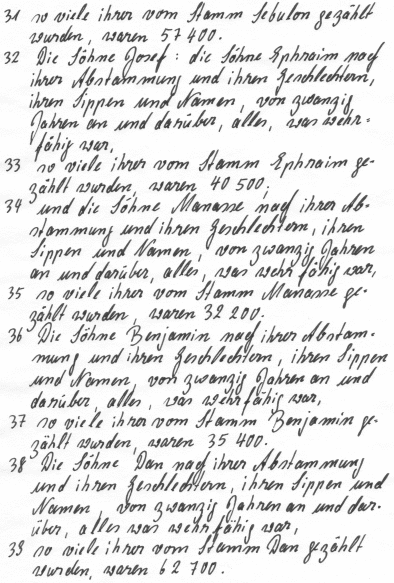 31 so viele ihrer vom Stamm Sebulon gezählt
wurden, waren 57 400.
32 Die Söhne Josef: die Söhne Ephraim nach
ihrer Abstammung und ihren Geschlechtern,
ihren Sippen und Namen, von zwanzig
Jahren an und darüber, alles, was wehr=
fähig war,
33 so viele ihrer vom Stamm Ephraim ge-
zählt wurden, waren 40 500;
34 und die Söhne Manasse nach ihrer Ab-
stammung und ihren Geschlechtern, ihren
Sippen und Namen, von zwanzig Jahren
an und darüber, alles, was wehrfähig war,
35 so viele ihrer vom Stamm Manasse ge-
zählt wurden, waren 32 200.
36 Die Söhne Benjamin nach ihrer Abstam-
mung und ihren Geschlechtern, ihren Sippen
und Namen, von zwanzig Jahren an und
darüber, alles, was wehrfähig war,
37 so viele ihrer vom Stamm Benjamin ge-
zählt wurden, waren 35 400.
38 Die Söhne Dan nach ihrer Abstammung
und ihren Geschlechtern, ihren Sippen und
Namen, von zwanzig Jahren an und dar-
über, alles was wehrfähig war,
39 so viele ihrer vom Stamm Dan gezählt
wurden, waren 62 700.